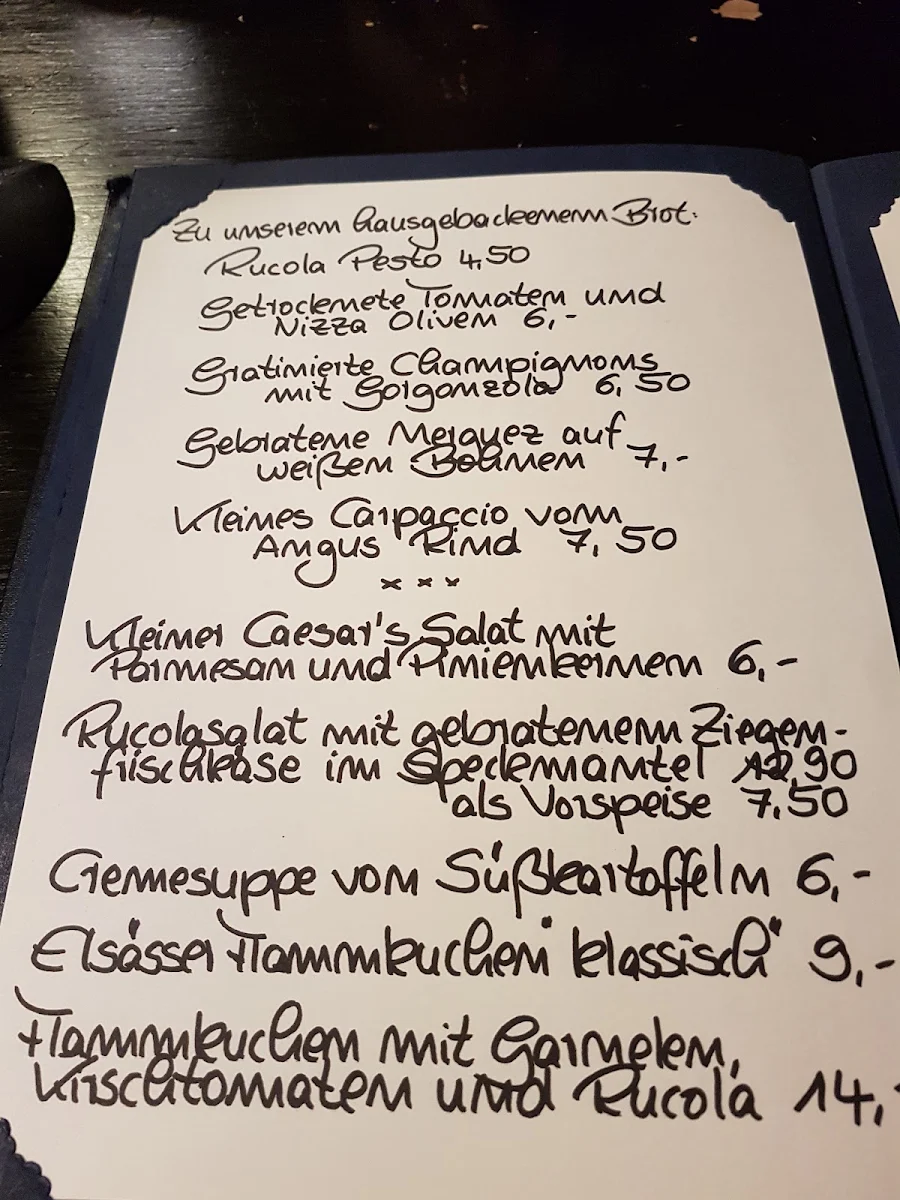 Zu unserem hausgebackenem Brot:
Rucola Pesto 4,50
Getrocknete Tomaten und
Nizza Oliven 6,-
Gratinierte Champignons
mit Gorgonzola 6,50
Gebratene Merguez auf
weißen Bohnen 7,-
Kleines Carpaccio vom
Angus Rind 7,50
x x x
Kleiner Caesar's Salat mit
Parmesan und Pinienkernen 6,-
Rucolasalat mit gebratenem Ziegen-
frischkäse im Speckmantel 12,90
als Vorspeise 7,50
Cremesuppe von Süßkartoffeln 6,-
Elsässer Flammkuchen "klassisch" 9,-
Flammkuchen mit Garnelen,
Kirschtomaten und Rucola 14,-